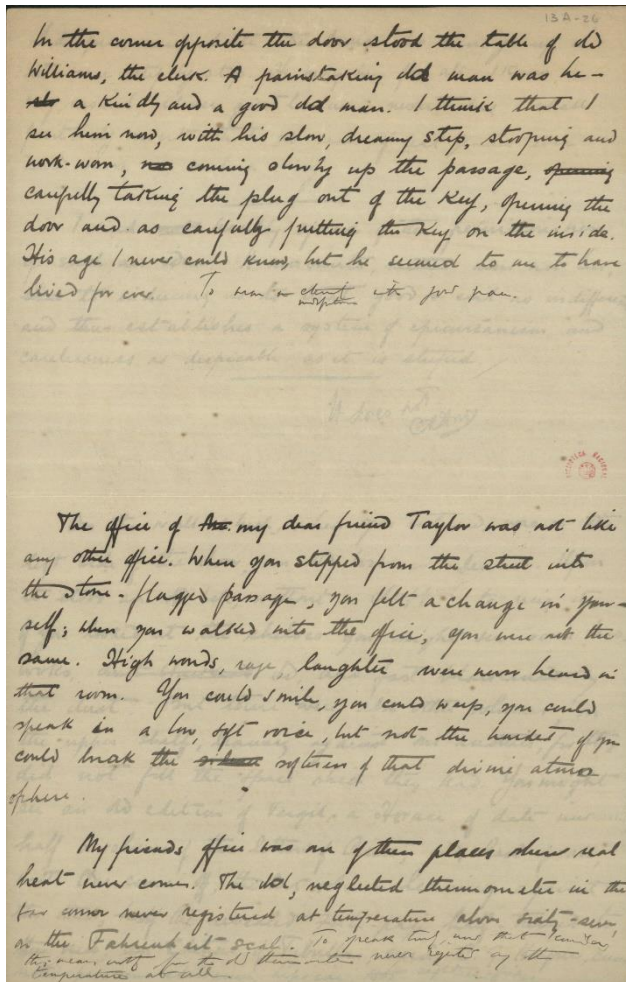 13A-26
In the corner opposite the door stood the table of old
Williams, the clerk. A painstaking old man was he –
a kindly and a good old man. I think that I
see him now, with his slow, dreamy step, stooping and
work-worn, coming slowly up the passage, opening
carefully taking the plug out of the key, opening the
door and as carefully putting the key on the inside.
His age I never could know, but he seemed to me to have
lived for ever. To
and thus establishes a system of
carelessness as despicable as it is stupid.
The office of my dear friend Taylor was not like
any other office. When you stepped from the street into
the stone-flagged passage, you felt a change in your-
self; when you walked into the office, you were not the
same. High words, rage, laughter were never heard in
that room. You could smile, you could weep, you could
speak in a low, soft voice, but not the hardest of you
could break the softness of that divine atmos
phere.
My friends office was one of those places where real
heat never comes. The old, neglected thermometer in the
far corner never registered a temperature above sixty-seven
on the Fahrenheit scale. To speak truly, and that
the old thermometer never any
temperature at all.